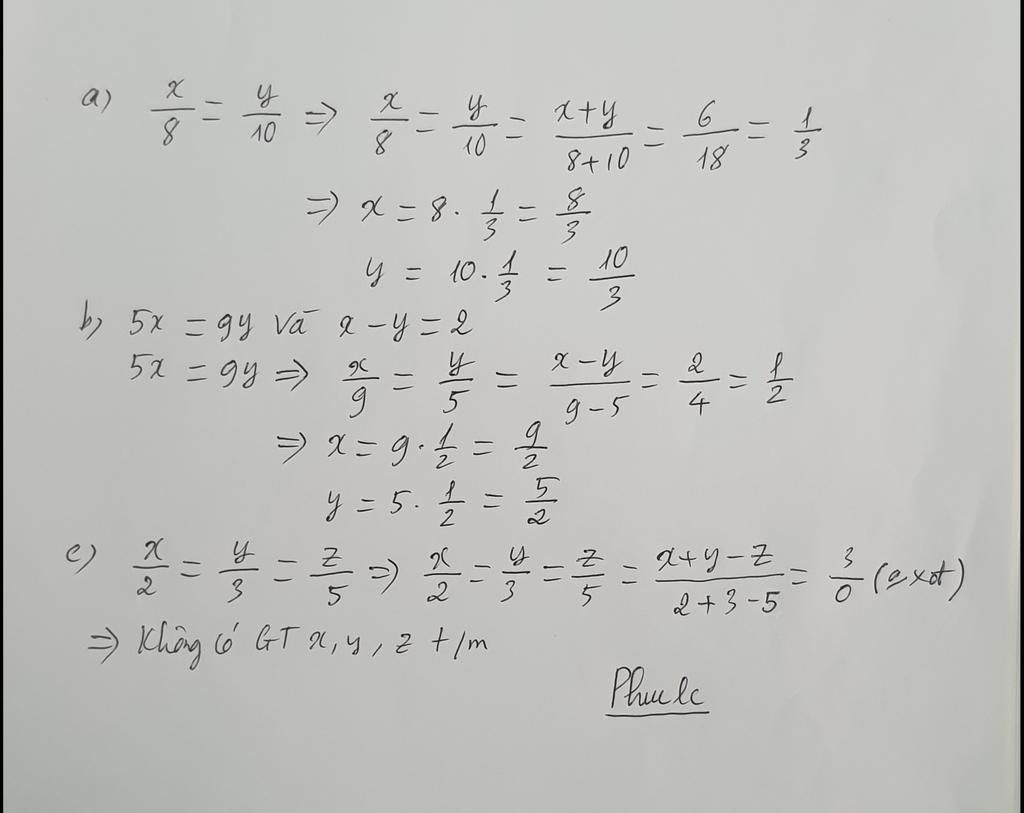 a) x/8 = y/10 ⇒ x/8 = y/10 = x+y/8+10 = 6/18 = 1/3
⇒ x = 8 . 1/3 = 8/3
y = 10 . 1/3 = 10/3
b) 5x = 9y và x - y = 2
5x = 9y ⇒ x/9 = y/5 = x-y/9-5 = 2/4 = 1/2
⇒ x = 9 . 1/2 = 9/2
y = 5 . 1/2 = 5/2
c) x/2 = y/3 = z/5 ⇒ x/2 = y/3 = z/5 = x+y-z/2+3-5 = 3/0
⇒ Không có GT x, y, z t/m